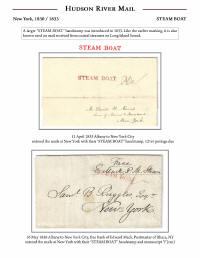 HUDSON RIVER MAIL
New York, 1830 / 1833 STEAM BOAT
A larger "STEAM BOAT" handstamp was introduced in 1833. Like the earlier marking, it is also
known used on mail received from coastal steamers on Long Island Sound.
STEAM BOAT
STEAM BOAT
New York
11 April 1833 Albany to New York City
entered the mails at New York with their "STEAM BOAT" handstamp, 12½¢ postage due
Free
Saml. B. Ruggles, Esqr
New-York
16 May 1836 Albany to New York City, free frank of Edward Mack, Postmaster of Ithaca, NY
entered the mails at New York with their "STEAM BOAT" handstamp and manuscript